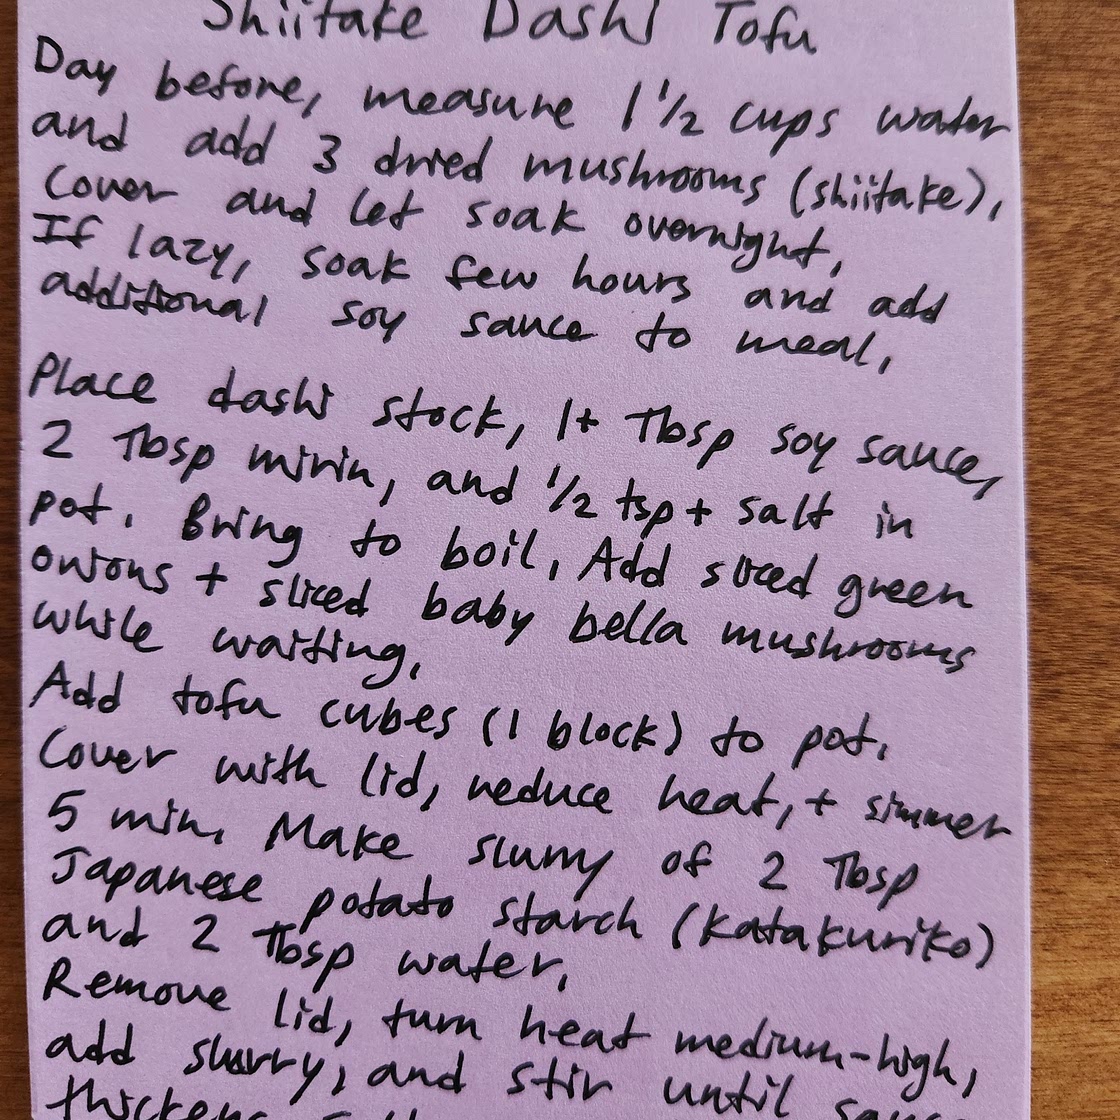 Shiitake Dashi Tofu
Day before, measure 1 1/2 cups water
and add 3 dried mushrooms (shiitake),
cover and let soak overnight.
If lazy, soak few hours and add
additional soy sauce to meal.
Place dashi stock, 1+ Tbsp soy sauce,
2 Tbsp mirin, and 1/2 tsp+ salt in
pot. Bring to boil. Add sliced green
onions + sliced baby bella mushrooms
while waiting.
Add tofu cubes (1 block) to pot.
Cover with lid, reduce heat, + simmer
5 min. Make slurry of 2 Tbsp
Japanese potato starch (katakuriko)
and 2 Tbsp water.
Remove lid, turn heat medium-high,
add slurry, and stir until
thickens